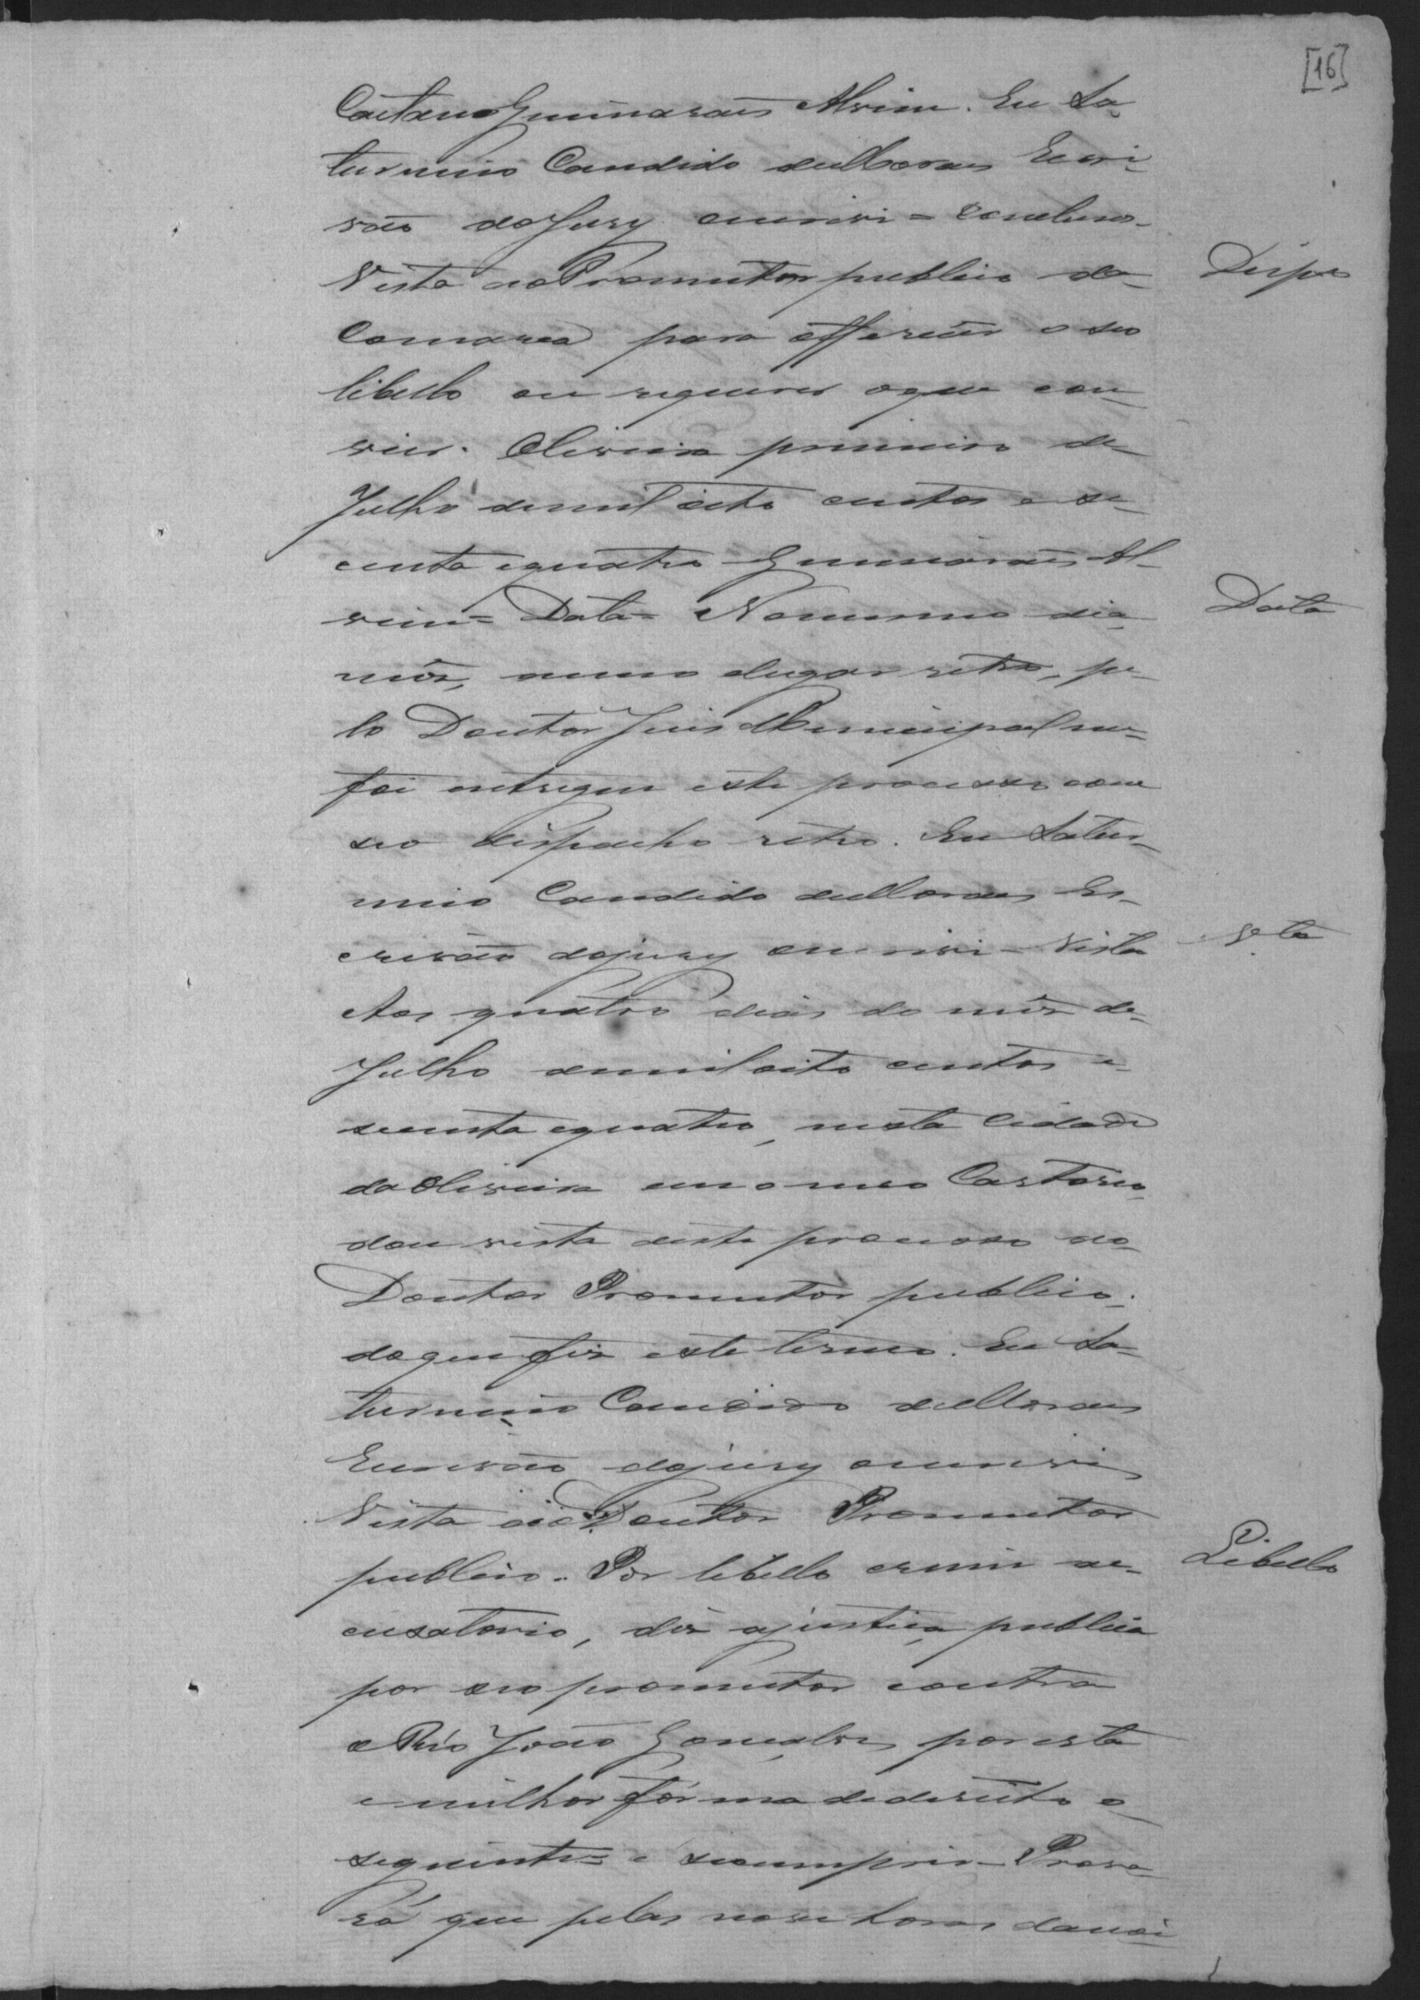 [16]
Caetano Guimarães Alvim. Eu Sa-
turnino Candido de Moraes Escri-
vão do Jury escrivi = Concluso -
Vista ao Promutor publico da Despo
Comarca para offerecer o seo
libello ou requerer o que con-
vier. Oliveira primeiro de
Julho de mil oito centos e se-
centa e quatro Guimarães Al-
vim = Data = No mesmo dia Data
mês, anno e lugar retro, pe-
lo Doutor Juis Municipal me
foi entregue este processo com
seo despacho retro. Eu Satur-
nino Candido de Moraes Es-
crivão do jury escrivi - Vista Vta
Aos quatro dias do mês de
Julho de mil oito centos e
secenta e quatro, nesta Cidade
da Oliveira em o meo Cartorio
dou vista deste processo ao
Doutor Promutor publico;
do que fis este termo. Eu Sa-
turnino Candido de Moraes
Escrivão do jury escrivi
Vista ao Doutor Promutor
publico. Por libello crime ac- Libello
cusatorio, dis a justiça publica
por seo promutor contra
o Réo João Gonçalves por esta
e milhor fórma de dereito o
seguinte = e secumprir - Prova-
rá que pelas nove horas da noi